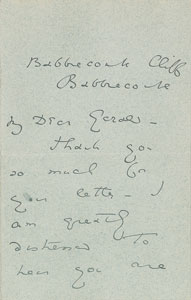 Babbacombe Cliff
Babbacombe
My Dear Gerald -
Thank you
so much for
your letter - I
am greatly
distressed to
hear you are